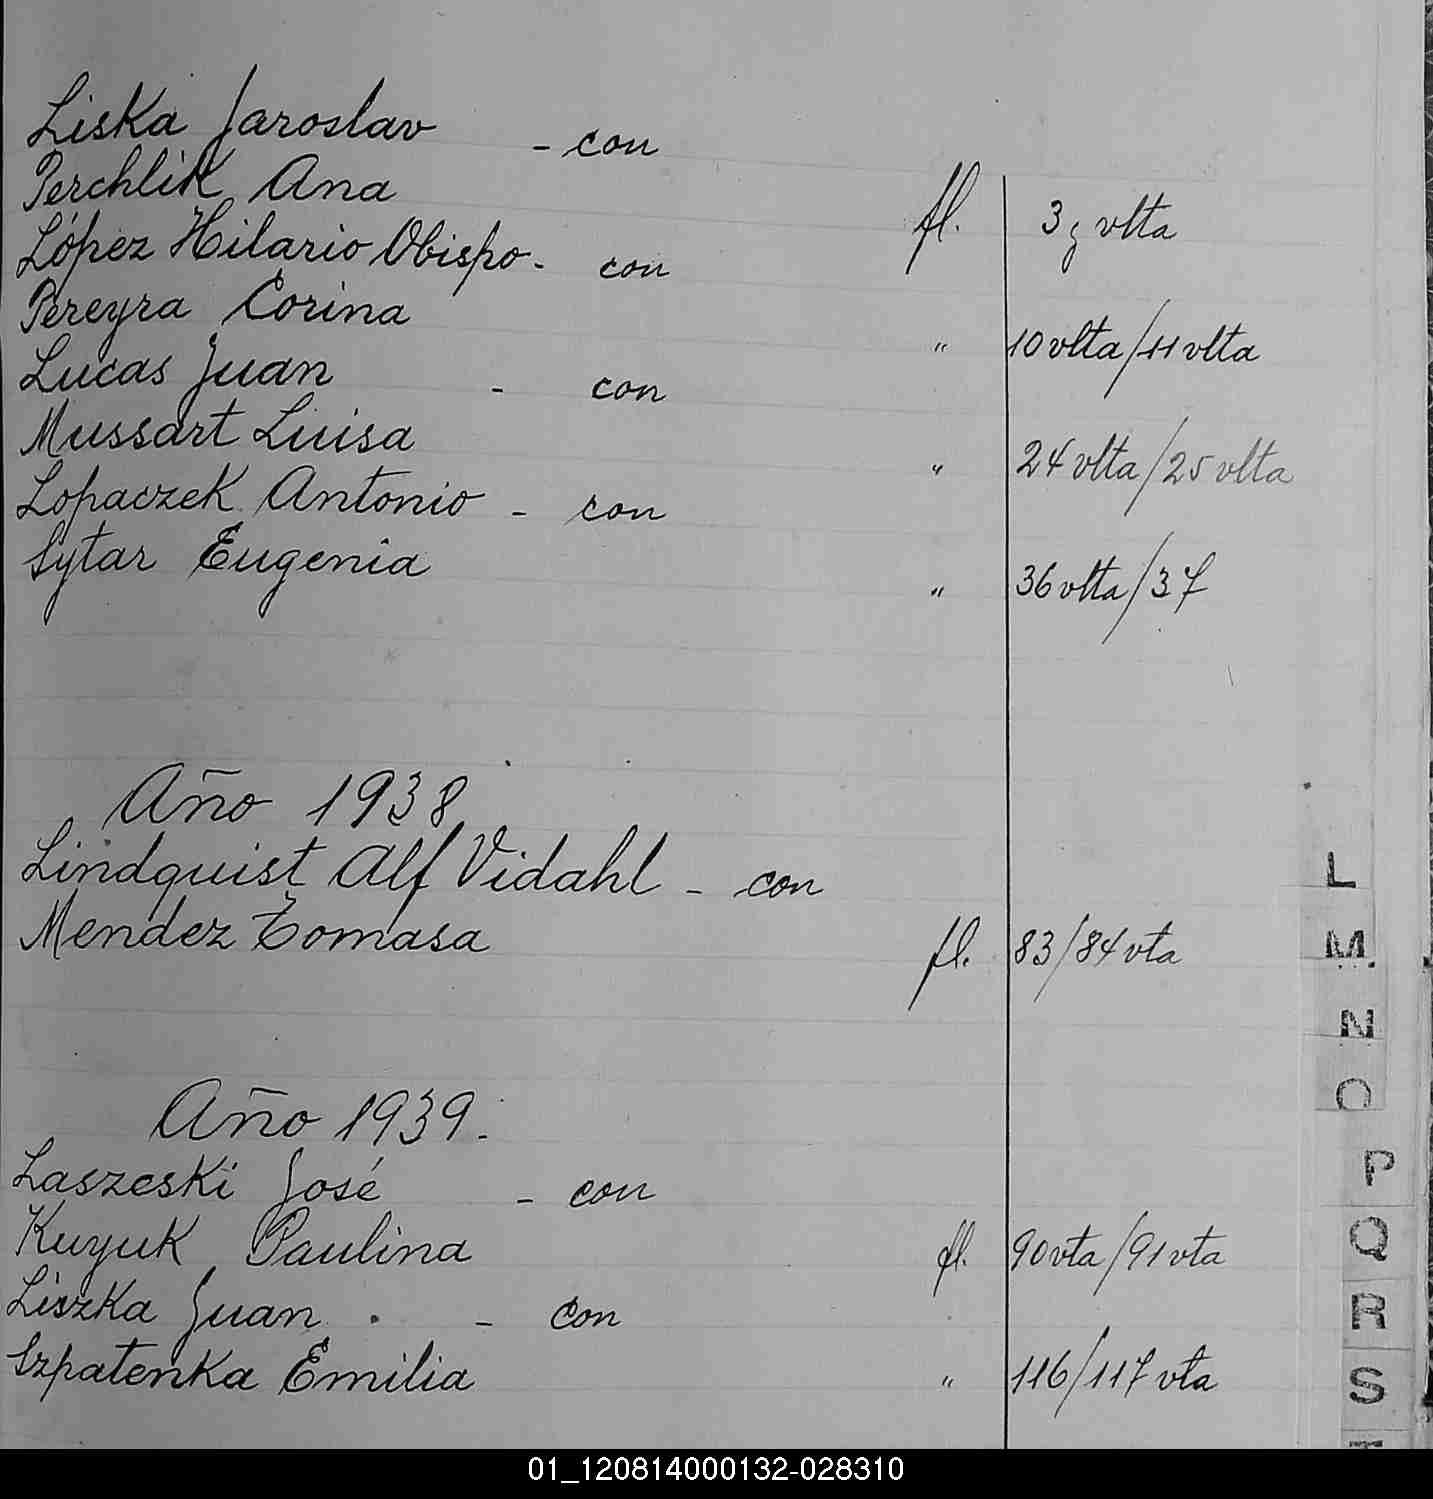 Liska Jaroslav - con
Perchlik Ana fl. 3 y vlta
López Hilario Obispo - con
Pereyra Corina " 10 vlta/11 vlta
Lucas Juan - con
Mussart Luisa " 24 vlta/25 vlta
Lopaczek Antonio - con
Sytar Eugenia " 36 vlta/37
Año 1938
Lindquist Alf Vidahl - con
Mendez Tomasa fl. 83/84 vta
Año 1939.
Laszeski José - con
Kuyuk Paulina fl. 90 vta/91 vta
Liszka Juan - con
Szpatenka Emilia " 116/117 vta
L
M
N
O
P
Q
R
S
T
01_120814000132-028310